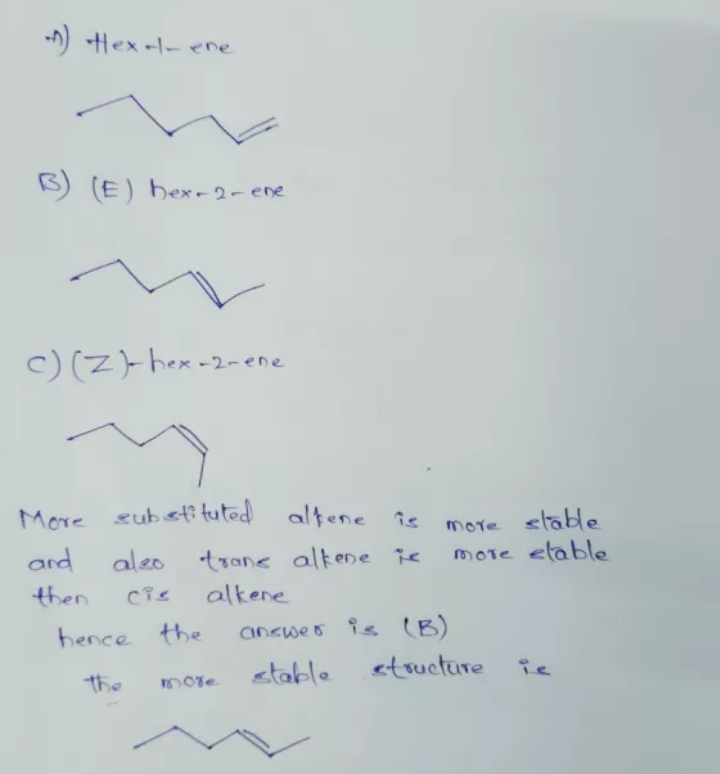 A) Hex-1-ene
B) (E) hex-2-ene
C) (Z)-hex-2-ene
More substituted alkene is more stable
and also trans alkene is more stable
then cis alkene
hence the answer is (B)
the more stable structure is